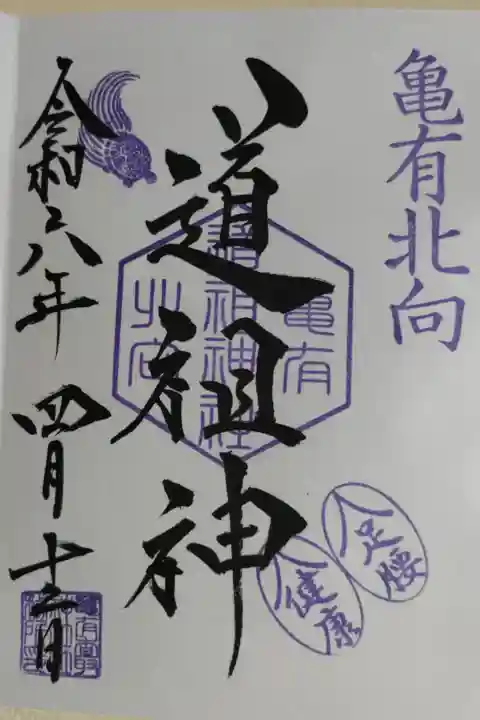 亀有北向
道祖神
亀有
道祖神社
北向
足腰
健康
令和六年 四月十三日